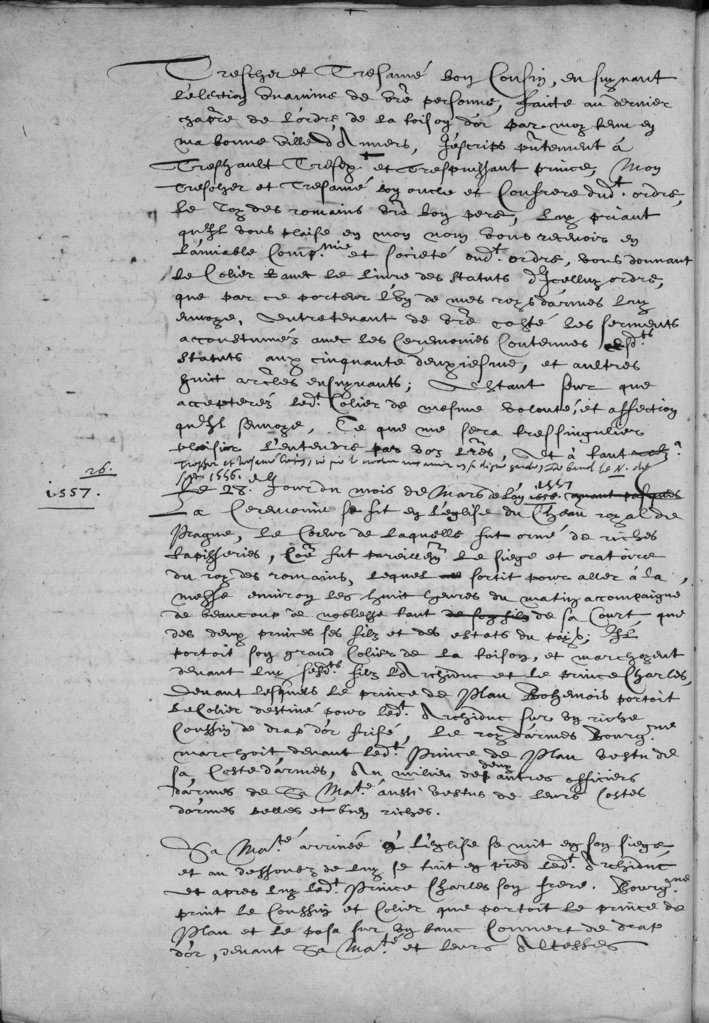 Trescher et Tresamé bon Cousin, en suyuant
l'election vnanime de vr̄e personne, faicte au dernier
chap̄re de l'ordre de la toison d'or par moy tenu en
ma bonne ville d'Anuers, J'escrips p̄ntement á
Treshault Tresex.t et Trespuissant prince, Mon
trescher et tresamé bon oncle et Confrere dud.t ordre,
le Roy des romains vr̄e bon pere, luy priant
qu'Jl vous plaise en mon nom vous receuoir en
l'amiable Comp.nie et societé dud.t ordre, vous donnant
le Colier & auec le liure des statuts d'Jcelluy ordre,
que par ce porteur l'vn de mes roys d'armes luy
enuoye, entretenant de vr̄e costé les serments
accoustumés auec les Ceremonies Contenues esd.ts
statuts aux cinquante deuxiesme, et aultres
huict ar̄cles ensuyuants; Estant seur que
accepterez led.t Colier de mesme volonté, et affection
qu'Jl s'enuoye, Ce que me sera tressingulier
plaisir l'entendre par voz l̄res, Et à tant
Trescher et tresamé Cousin, ... de Bruxelles le .N. de
Sep. 1556.
26.
1557.
Le 27. Jour du mois de Mars de l'an 1557
La Ceremonie se fit en l'eglise du Ch̄au royal de
Prague, le Coeur de laquelle fut orné de riches
tapisseries, Co̅e fut pareillem̄t le siege et oratoire
du roy des romains, lequel sortit pour aller á la
messe enuiron les huit heures du matin accompaigné
de beaucoup de noblesse tant de sa Court, que
des deux princes ses filz et des estats du pays; Jl
portoit son grand Colier de la toison, et marchoyent
deuant luy sesd.ts filz l'Archiduc et le prince Charles,
Deuant lesquels le prince de Plau Bohemois portoit
le Colier destiné pour led.t Archiduc sur vn riche
Coussin de drap d'or frisé, Le roy d'armes Bourg.ne
marchoit deuant led.t Prince de Plau vestu de
sa Coste d'armes, Au milieu de deux autres officiers
d'armes de Sa Ma.té aussi vestus de leurs Costes
d'armes belles et bien riches.
Sa Ma.té arriuée á l'eglise se mit en son siege
et au dessoubz de luy se tint en pied led.t Archiduc
et apres luy led.t Prince Charles son frere. Bourg.ne
print le Coussin et Colier que portoit le prince de
Plau et le posa sur vn banc Couuert de drap
d'or, deuant Sa Ma.té et leurs Altesses